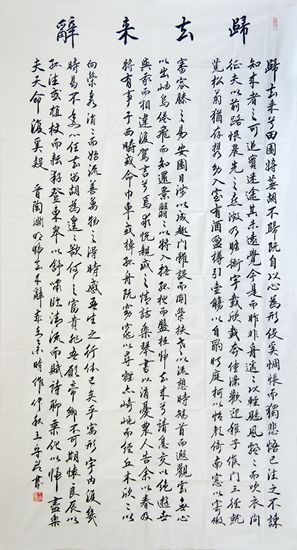 歸去來辭
歸去來兮田園將蕪胡不歸既自以心為形役奚惆悵而獨悲悟已往之不諫
知來者之可追實迷途其未遠覺今是而昨非舟遙々以輕颺風飄々而吹衣問
征夫以前路恨晨光之熹微乃瞻衡宇載欣載奔僮僕歡迎稚子候門三徑就
荒松菊猶存攜幼入室有酒盈樽引壺觴以自酌眄庭柯以怡顏倚南窗以寄傲
審容膝之易安園日涉以成趣門雖設而常關策扶老以流憩時矯首而遐觀雲無心
以出岫鳥倦飛而知還景翳々以將入撫孤松而盤桓歸去來兮請息交以絕遊世
與我而相違復駕言兮焉求悅親戚之情話樂琴書以消憂農人告余以春及
將有事于西疇或命巾車或棹孤舟既窈窕以尋壑亦崎嶇而經丘木欣々以
向榮泉涓々而始流善萬物之得時感吾生之行休已矣乎寓形宇內復幾
時曷不委心任去留胡為遑遑欲何之富貴非吾願帝鄉不可期懷良辰以
孤往或植杖而耘耔登東皋以舒嘯臨清流而賦詩聊乘化以歸盡樂
夫天命復奚疑 陶淵明歸去來辭 仲秋 書